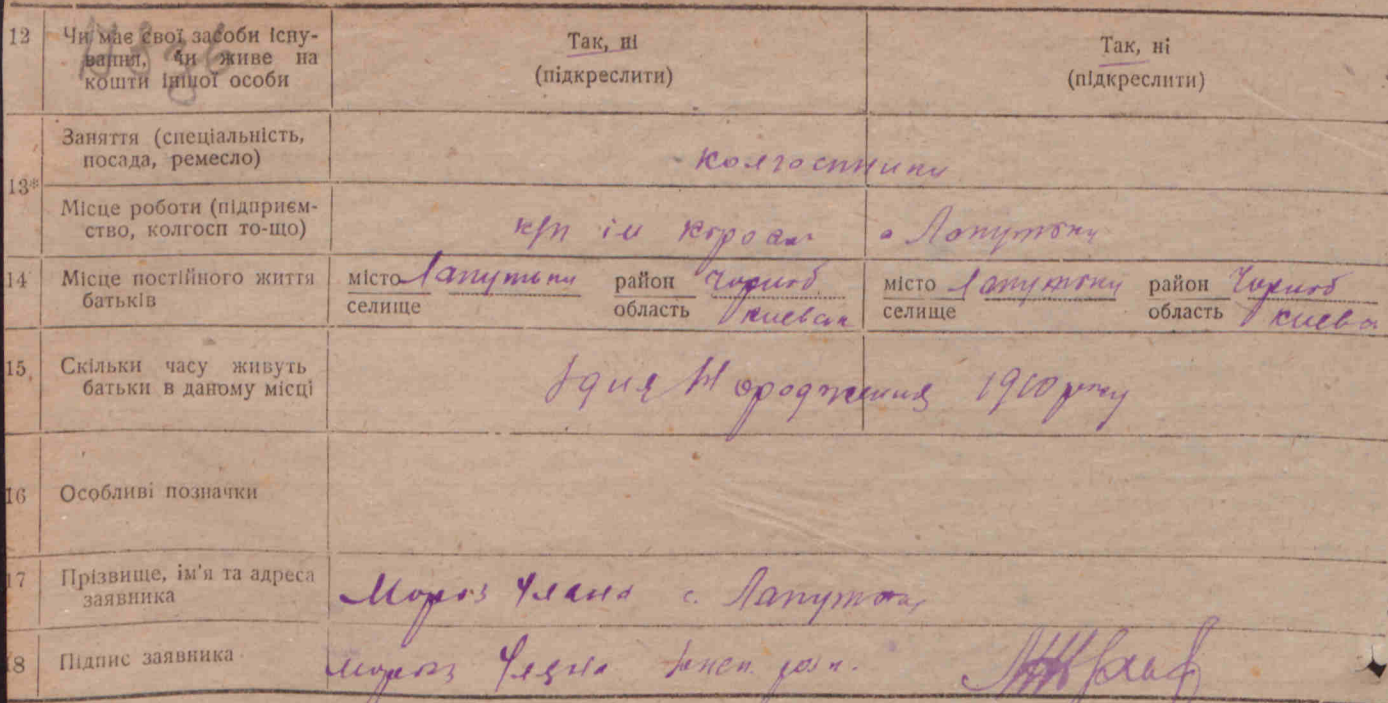 12 Чи має свої засоби існу-
вання, чи живе на
кошти іншої особи
Так, ні
(підкреслити)
Так, ні
(підкреслити)
13*
Заняття (спеціальність,
посада, ремесло)
колгоспники
Місце роботи (підприєм-
ство, колгосп то-що)
ім
14 Місце постійного життя
батьків
місто
селище
район Чорноб
область Киевск
місто
селище
район Чорноб
область Киевс
15. Скільки часу живуть
батьки в даному місці
1910 року
16 Особливі позначки
17 Прізвище, ім'я та адреса
заявника
Мороз Уляна с.
18 Підпис заявника
Мороз Уляна